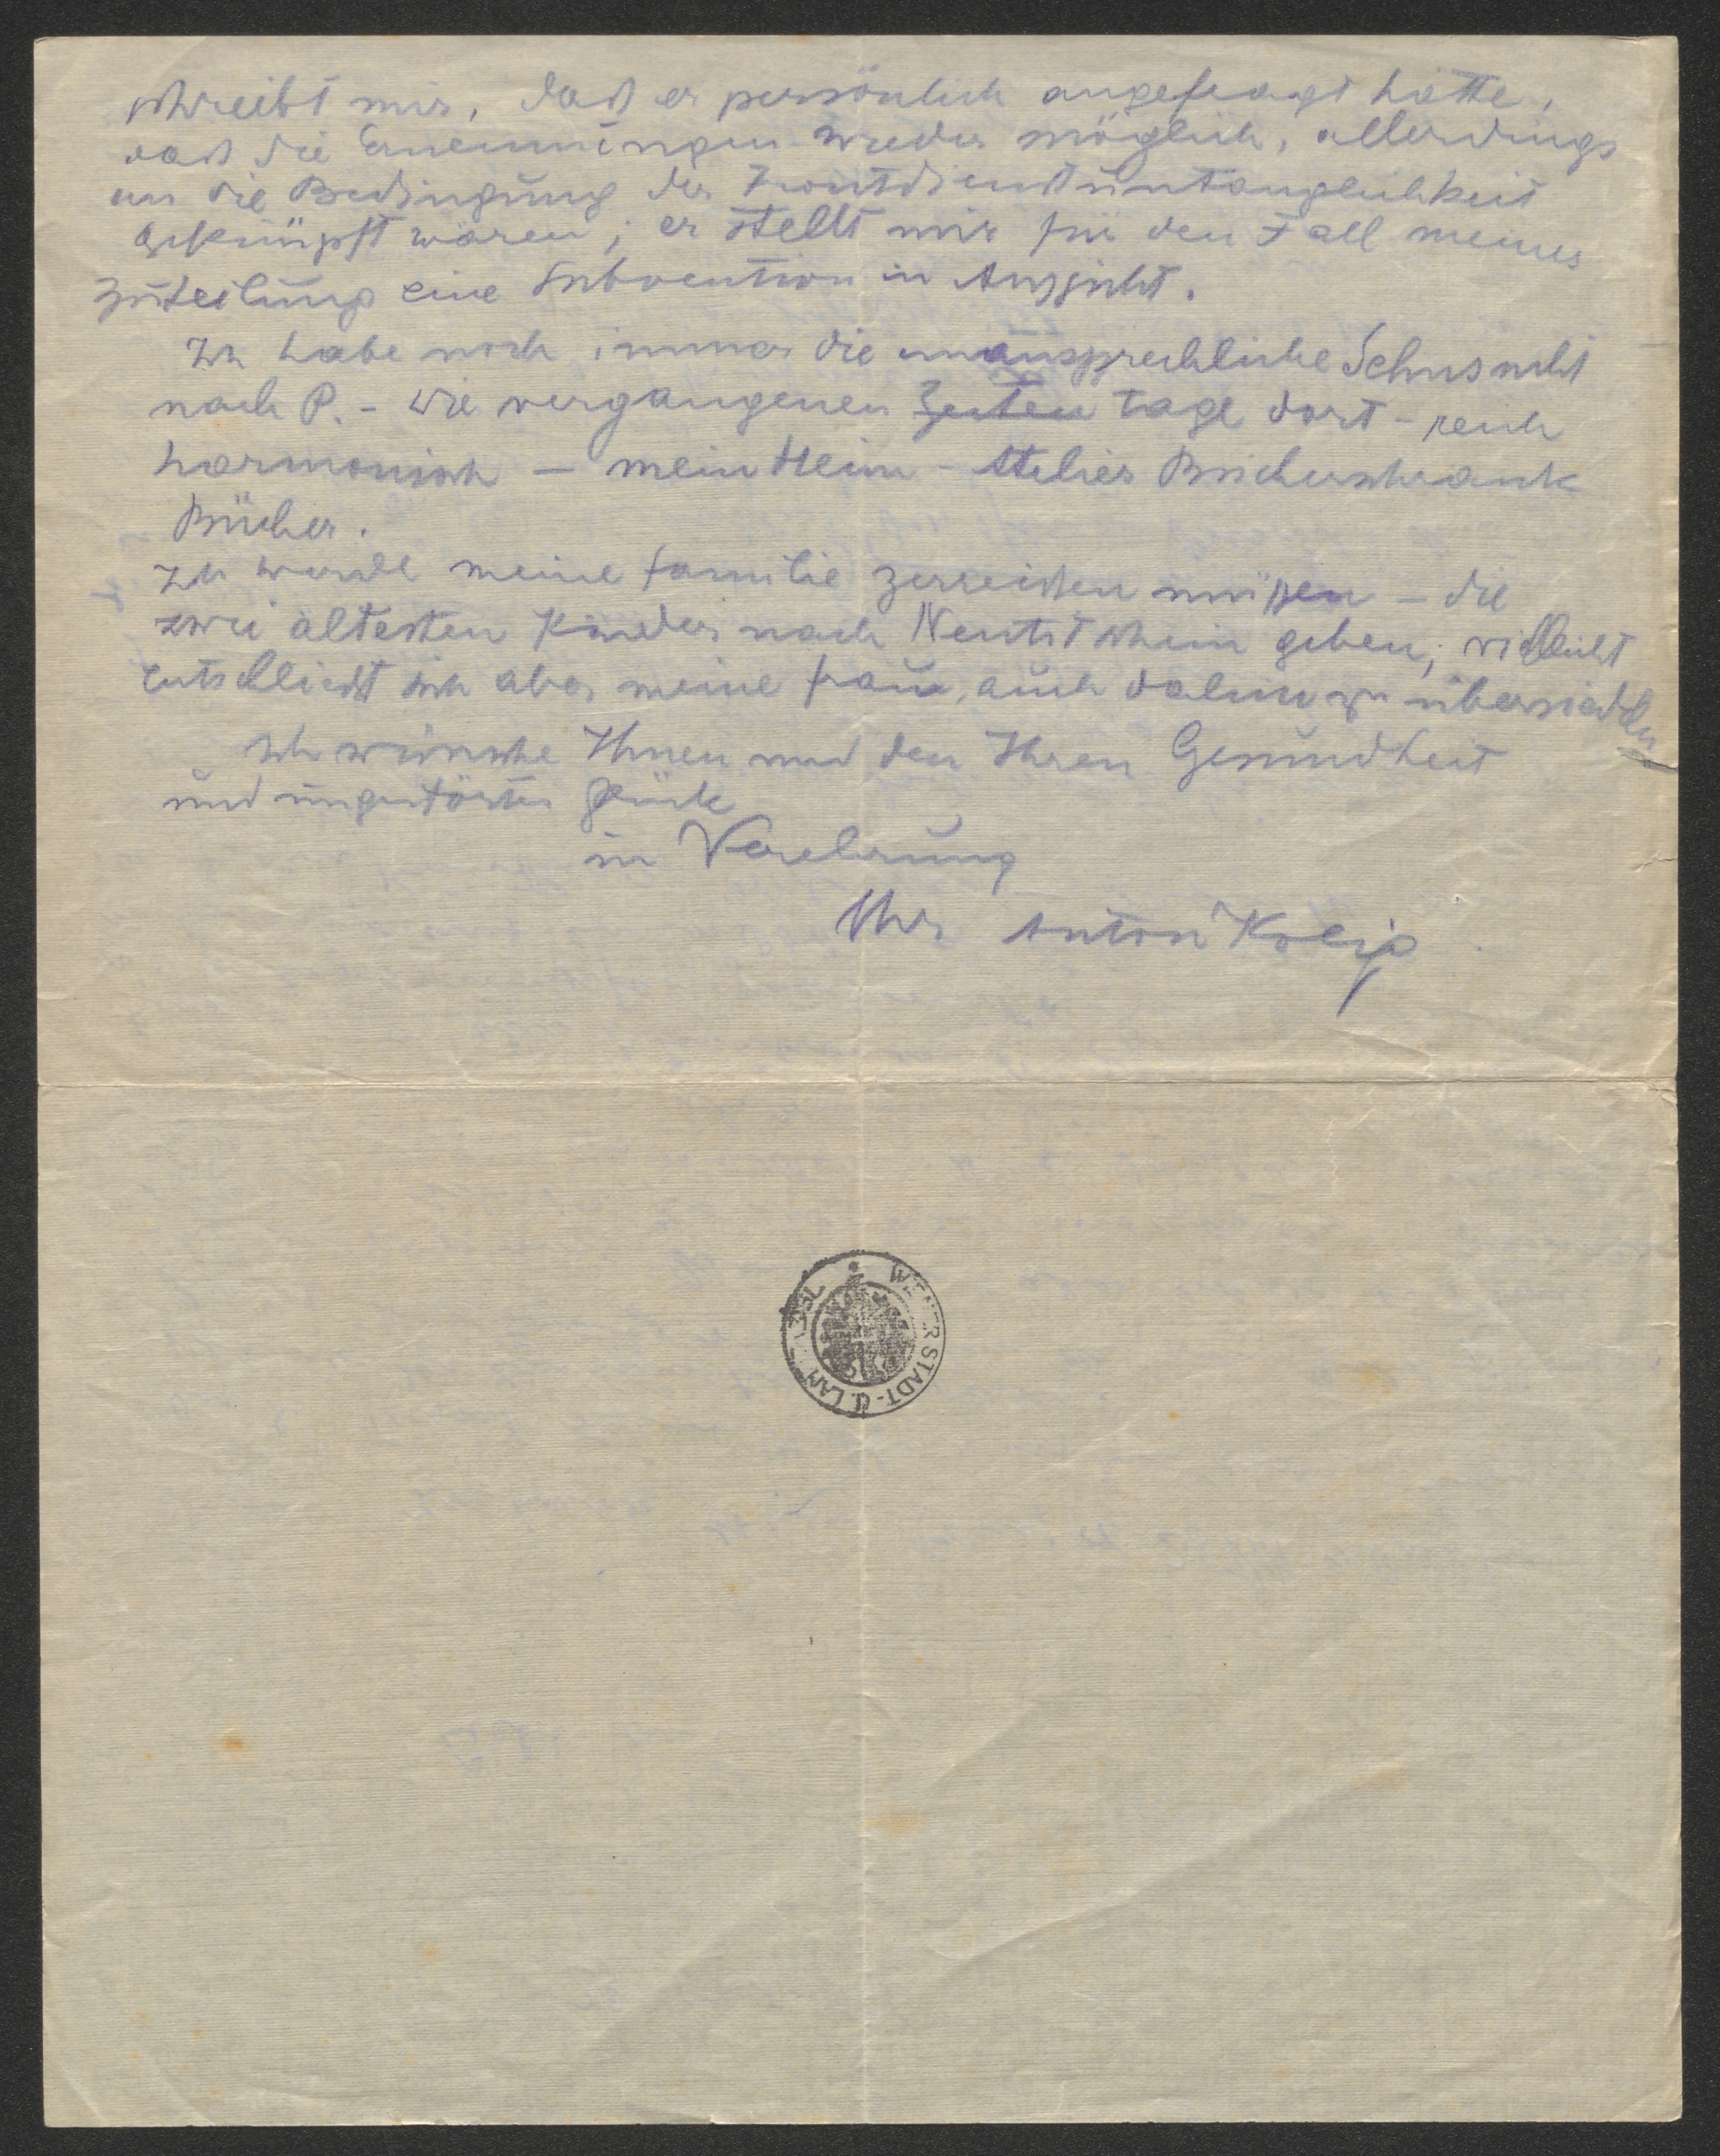 schreibt mir, daß er persönlich angefragt hätte,
daß die Ernennungen wieder möglich, allerdings
an die Bedingung der Frontdienstuntauglichkeit
geknüpft wären; er stellt mir für den Fall meiner
Zuteilung eine Subvention in Aussicht.
Ich habe noch immer die unaussprechliche Sehnsucht
nach P. - wie vergangenen Zeiten Tage dort - reich
harmonisch — mein Heim - Atelier Bücherschrank
Bücher.
Ich werde meine Familie zerreißen müssen - die
zwei ältesten Kinder nach Neutitschein geben; vielleicht
entschließt sich aber meine Frau, auch dahin zu übersiedeln
Ich wünsche Ihnen und den Ihren Gesundheit
und ungestörtes Glück
in Verehrung
Ihr Anton Kolig
WIENER STADT-U. LAM